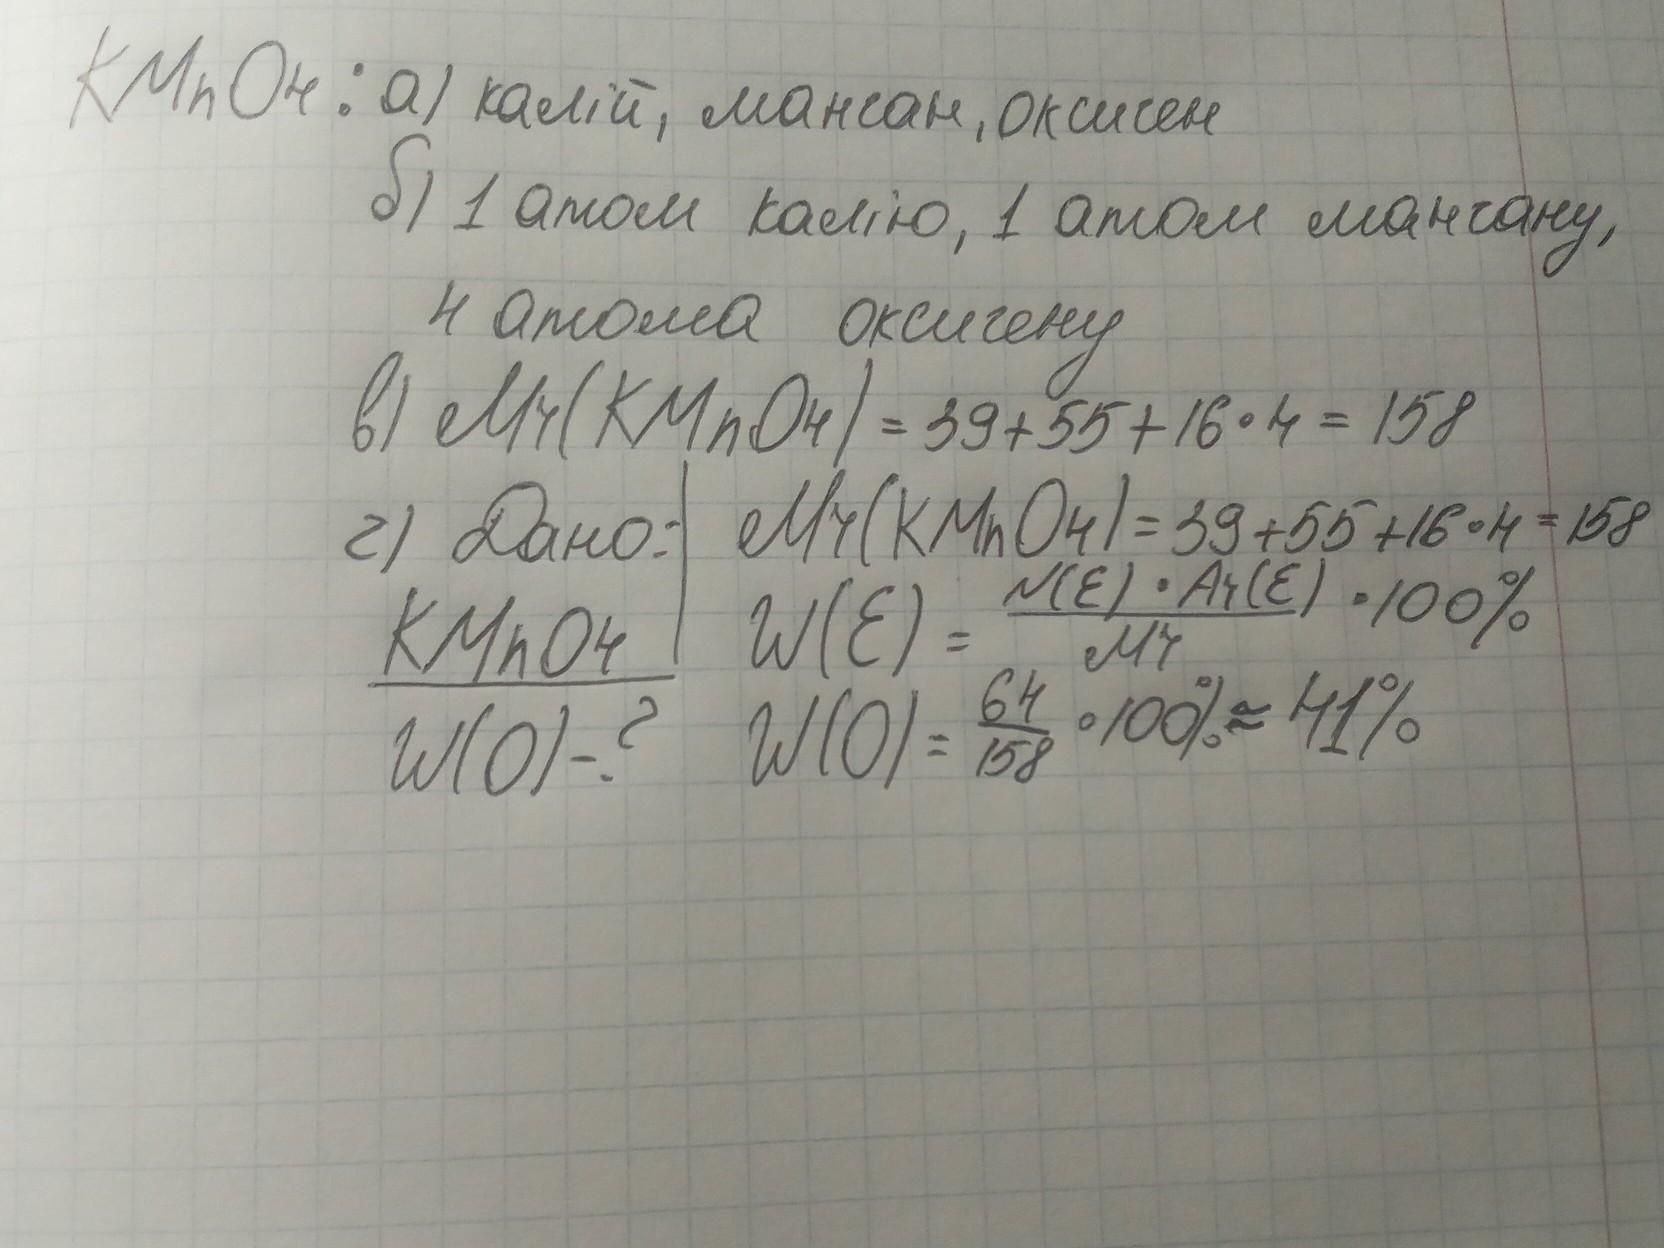 KMnO4: а) калій, манган, оксиген
б) 1 атом калію, 1 атом мангану,
4 атома оксигену
в) Mr(KMnO4) = 39+55+16•4 = 158
г) Дано: Mr(KMnO4) = 39+55+16•4 = 158
KMnO4 W(E) = N(E)•Ar(E)/Mr •100%
W(O)-? W(O) = 64/158 •100% ≈ 41%